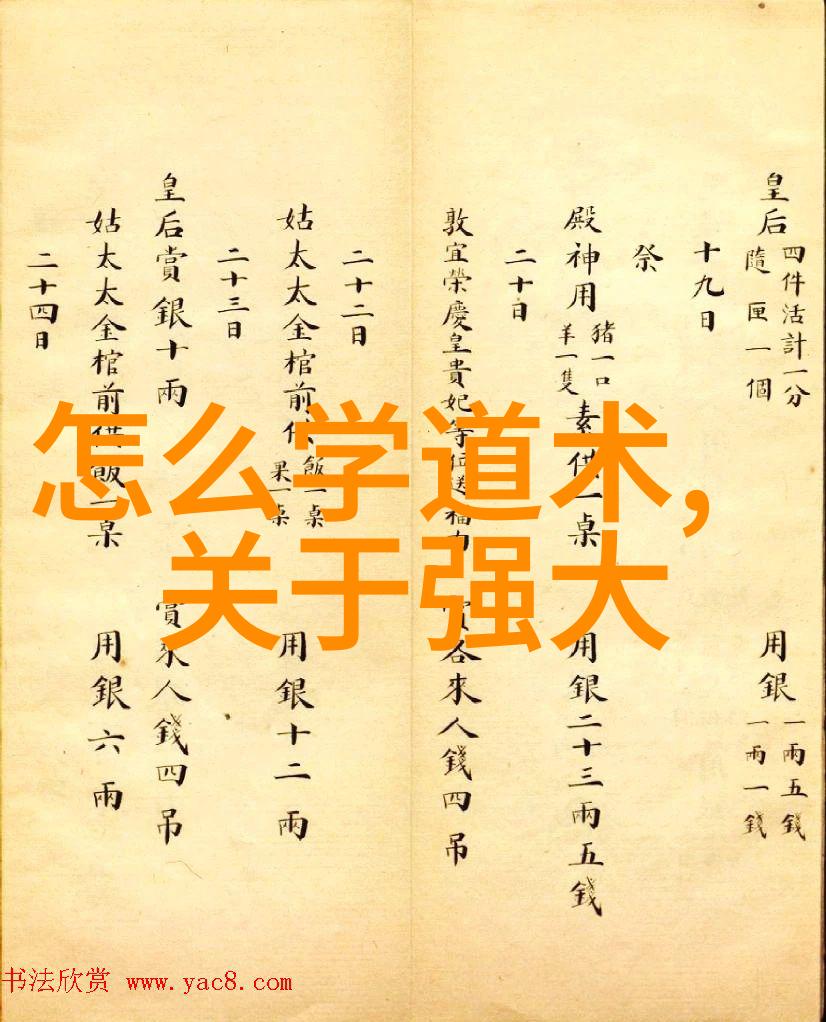 皇后 四件活計一分 隨匣一個 用銀 一兩五錢 一兩一錢
十九日
祭
殿神用 豬一口 羊一隻 素供一桌 用銀二十三兩五錢
二十日
敦宜榮慶皇貴妃等位送福 賞各來人錢四吊
二十二日
姑太太金棺前供 飯一桌 果一桌 用銀十二兩
二十三日
皇后賞銀十兩 賞來人錢四吊
姑太太金棺前供飯一桌 用銀六兩
二十四日
怎么学道术,
关于强大
书法欣赏 www.yac8.com